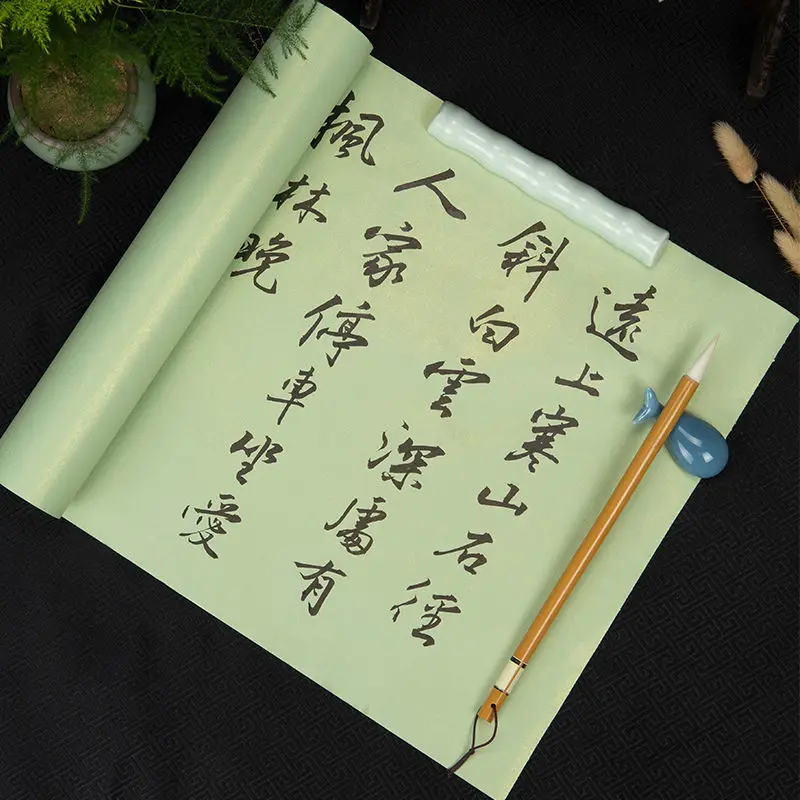 遠上寒山石徑
斜白雲深處有
人家停車坐愛
楓林晚